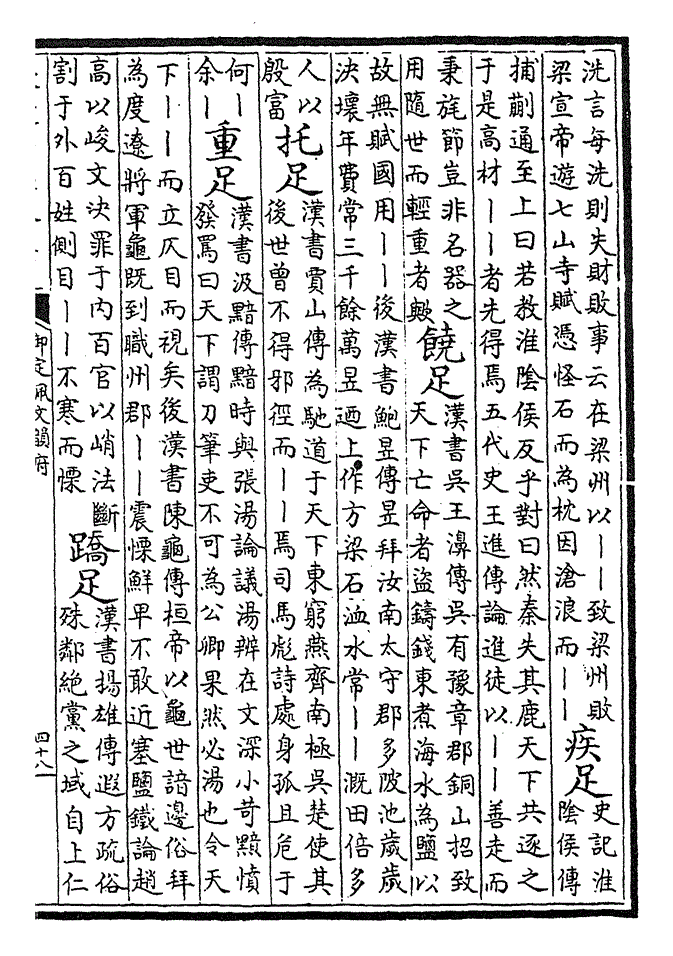 洗言每洗則失財敗事云在梁州以丨丨致梁州敗
梁宣帝遊七山寺賦憑怪石而為枕因滄浪而丨丨
疾足
史記淮
陰侯傳
捕蒯通至上曰若教淮陰侯反乎對曰然秦失其鹿天下共逐之
于是高材丨丨者先得焉五代史王進傳論進徒以丨丨善走而
秉旄節豈非名器之
用隨世而輕重者歟
饒足
漢書吳王濞傳吳有豫章郡銅山招致
天下亡命者盜鑄錢東煮海水為鹽以
故無賦國用丨丨後漢書鮑昱傳昱拜汝南太守郡多陂池歲歲
決壞年費常三千餘萬昱迺上作方梁石洫水常丨丨溉田倍多
人以
殷富
托足
漢書賈山傳為馳道于天下東窮燕齊南極吳楚使其
後世曾不得邪徑而丨丨焉司馬彪詩處身孤且危于
何丨
余丨
重足
漢書汲黯傳黯時與張湯論議湯辨在文深小苛黯憤
發罵曰天下謂刀筆吏不可為公卿果然必湯也令天
下丨丨而立仄目而視矣後漢書陳龜傳桓帝以龜世諳邊俗拜
為度遼將軍龜既到職州郡丨丨震慄鮮卑不敢近塞鹽鐵論趙
高以峻文決罪于內百官以峭法斷
割于外百姓側目丨丨不寒而慄
蹻足
漢書揚雄傳遐方疏俗
殊鄰絶黨之域自上仁
御定佩文韻府
四十八